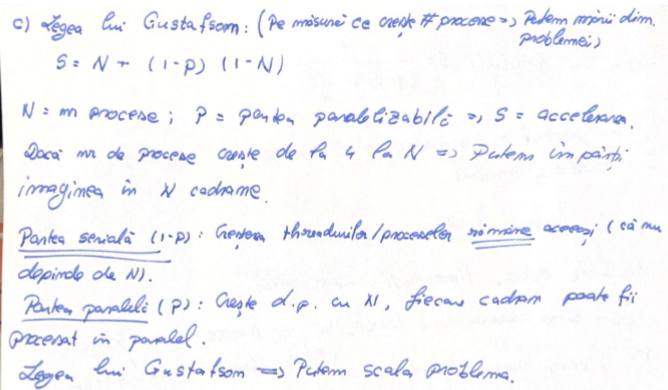 c) Legea lui Gustafson: (Pe măsură ce crește # procese => Putem mări dim.
problemei)
S = N + (1-p) (1-N)
N = nr procese ; P = partea paralelizabilă => S = accelerarea.
Dacă nr de procese crește de la 4 la N => Putem împărți
imaginea în N cadrane.
Partea serială (1-p): Creșterea threadurilor/proceselor rămâne aceeași (că nu
depinde de N).
Partea paralelă (P): Crește d.p. cu N, fiecare cadran poate fii
procesat în paralel.
Legea lui Gustafson => Putem scala problema.